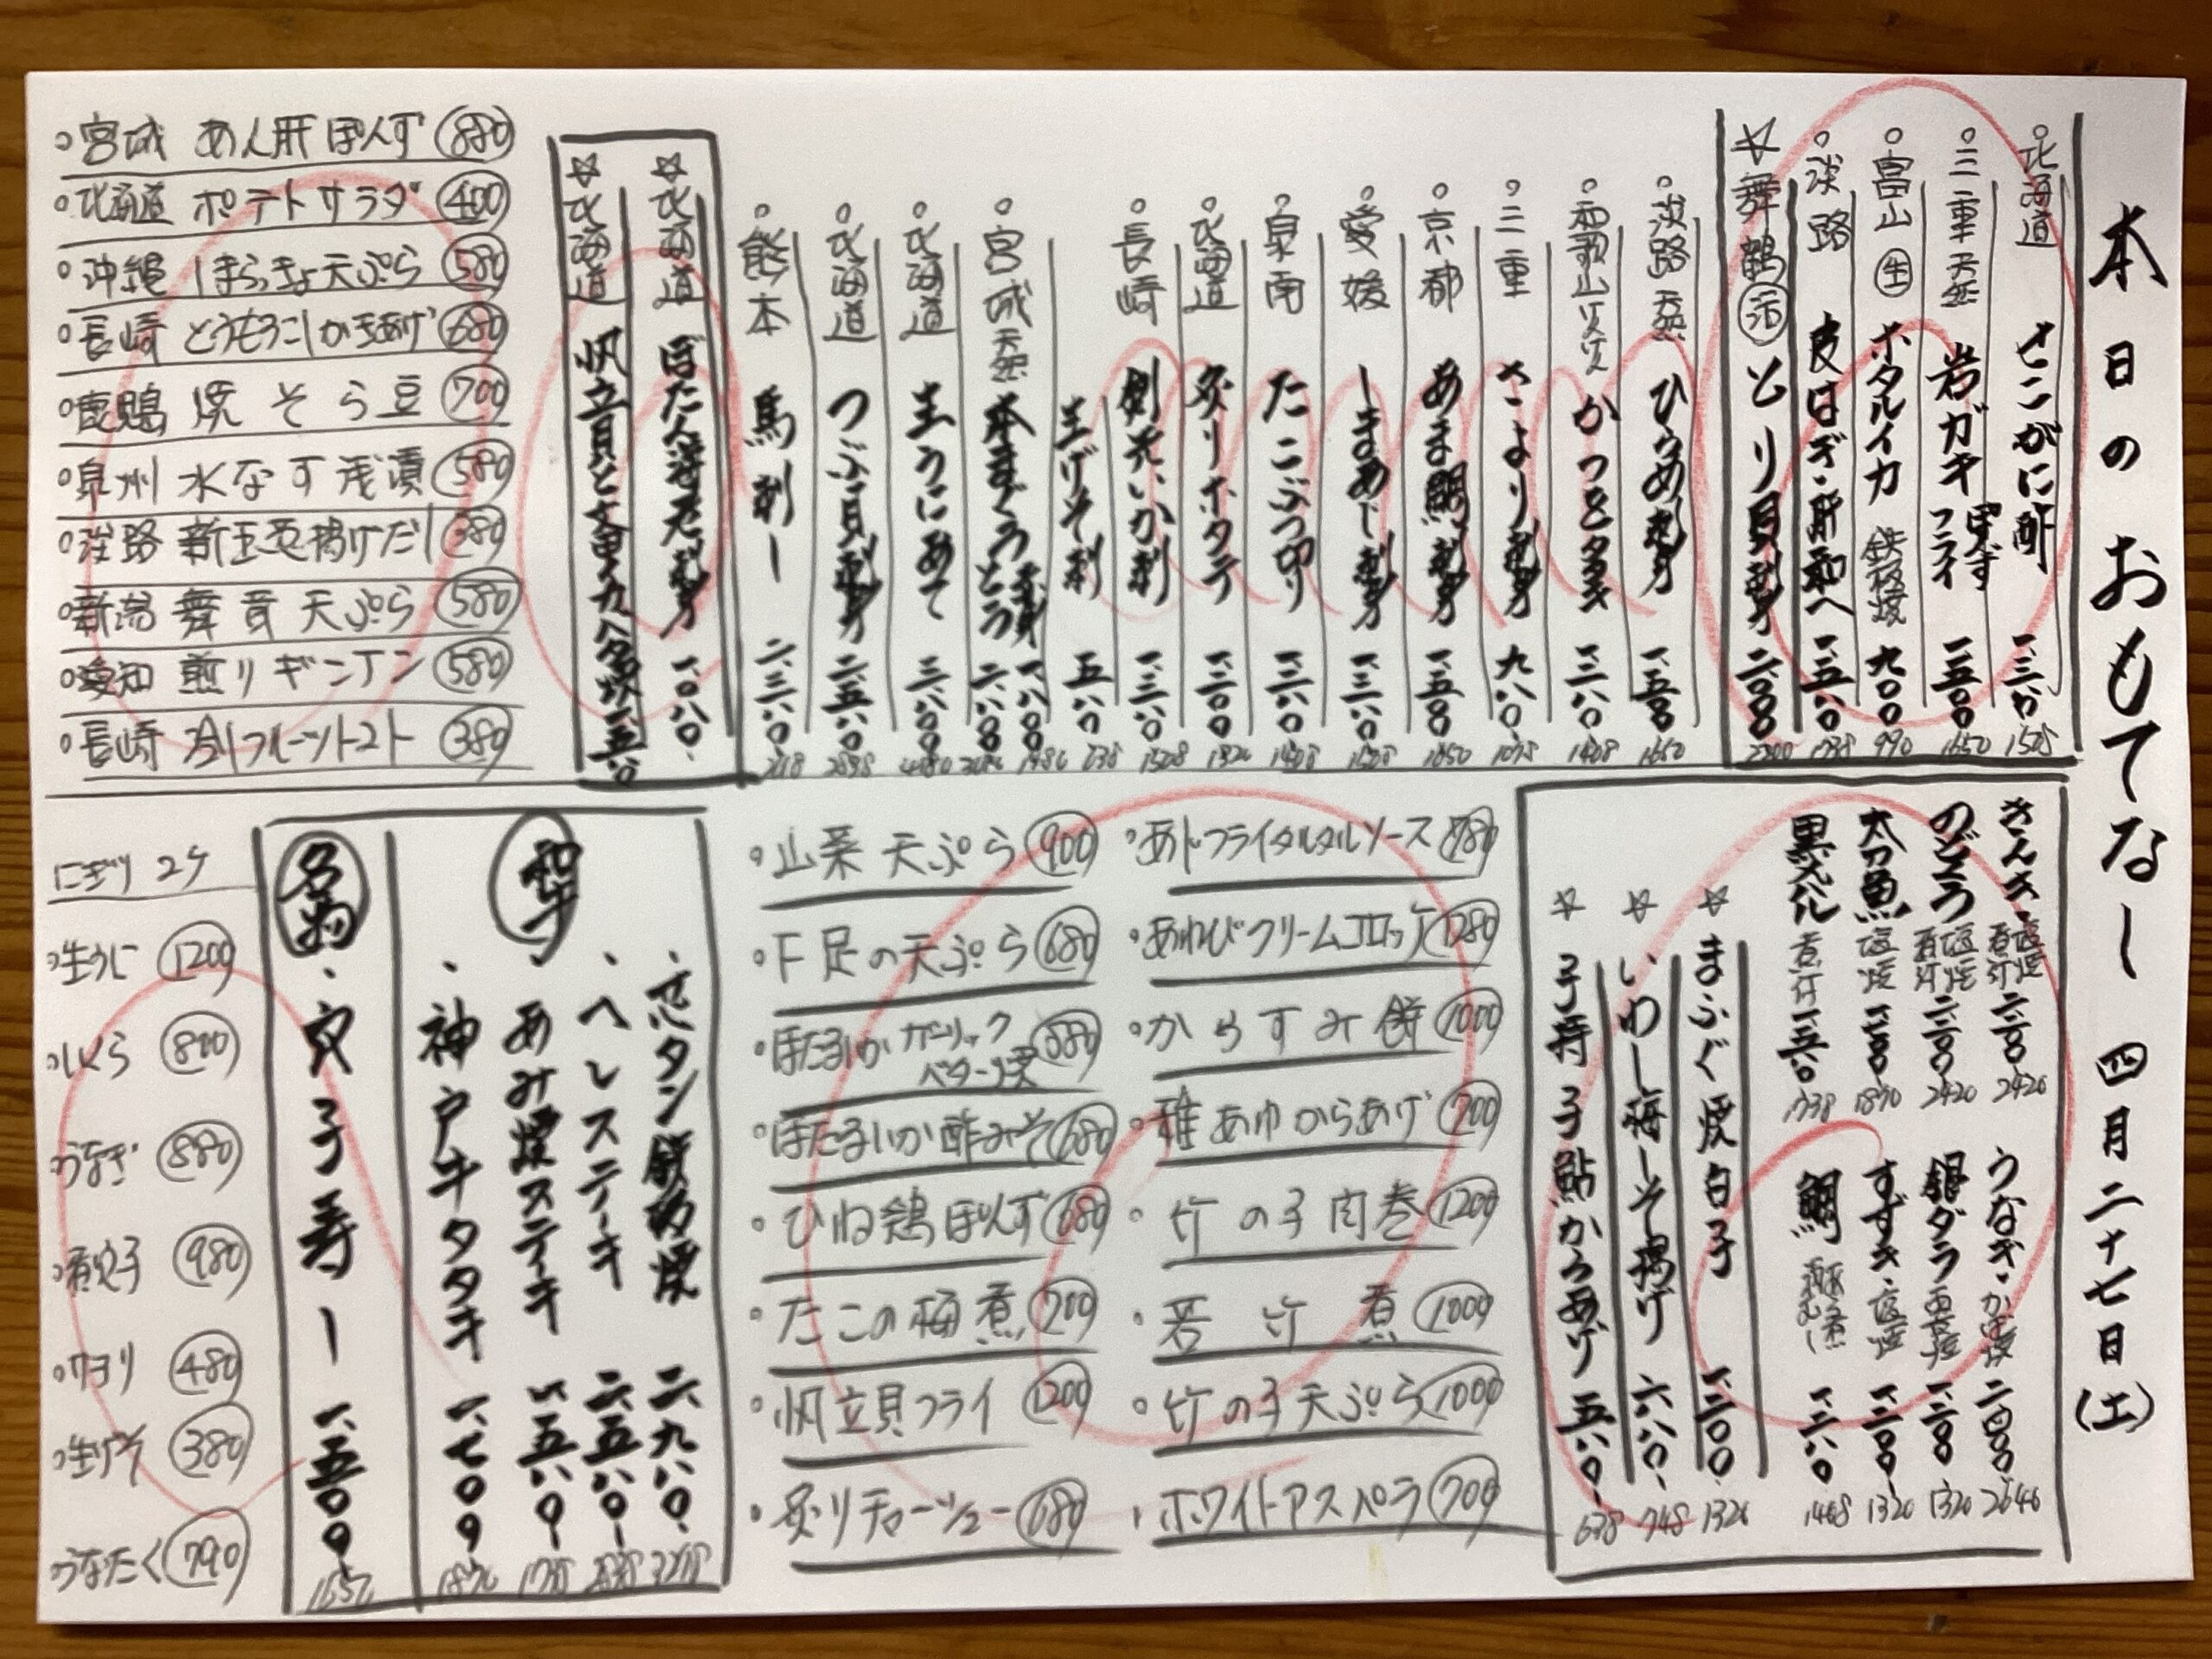 本日のおもてなし 四月二十七日(土)
北海道 せこがに酢 一、三八〇 1518
三重天然 岩ガキ ポン酢 フライ 一、五〇〇 1650
富山 生 ホタルイカ 鉄板焼 九〇〇 990
淡路 皮はぎ・肝和へ 一、五八〇 1738
☆舞鶴 活 とり貝刺身 二、〇〇〇 2200
淡路 天然 ひらめ刺身 一、五〇〇 1650
和歌山 かつをタタキ 一、二八〇 1408
三重 さより刺身 九八〇 1078
京都 あま鯛刺身 一、五〇〇 1650
愛媛 しまあじ刺身 一、三八〇 1518
泉南 たこぶつ切り 一、二八〇 1408
北海道 炙りホタテ 一、二〇〇 1320
長崎 剣先いか刺 一、三八〇
生げそ刺 五八〇 638
宮城 天然 本まぐろ 赤身 一、八〇〇 とろ 二、八〇〇
北海道 生うにあて 三、八〇〇
北海道 つぶ貝刺身 二、五八〇 2838
熊本 馬刺し 二、三八〇
☆北海道 ぼたん海老刺身 一、〇八〇
☆北海道 帆立貝と
・宮城 あん肝ぽんず 880
・北海道 ポテトサラダ 400
・沖縄 しまらっきょ天ぷら 580
・長崎 とうもろこしかきあげ 680
・鹿児島 焼そら豆 700
・泉州 水なす浅漬 580
・淡路 新玉葱揚げだし 380
・新潟 舞茸天ぷら 580
・愛知 煎りギンナン 580
・長崎 冷しフルーツトマト 380
きんき・塩焼 煮付 二、二〇〇 2420
のどぐろ 塩焼 煮付 二、二〇〇 2420
太刀魚 塩焼 一、七〇〇 1870
黒メバル 煮付 一、五八〇 1738
うなぎ・かば焼 二、四〇〇
銀ダラ 西京焼 一、二〇〇 1320
すずき・塩焼 一、二〇〇 1320
鯛 一、二八〇 1408
☆まふぐ焼白子 一、二〇〇 1320
☆いわし梅しそ揚げ 六八〇 748
☆子持子鮎からあげ 五八〇 638
・あじフライタルタルソース 780
・あわびクリームコロッケ 1280
・からすみ餅 1000
・稚あゆからあげ 700
・竹の子肉巻 1200
・若竹煮 1000
・竹の子天ぷら 1000
・ホワイトアスペラ 700
・山菜天ぷら 900
・下足の天ぷら 680
・ほたるいかガーリックバター焼 880
・ほたるいか酢みそ 680
・ひね鶏ぽんず 680
・たこの梅煮 700
・帆立貝フライ 1200
・炙りチャーシュー 680
和牛
・芯タン鉄板焼 二、九八〇 3278
・ヘレステーキ 二、五八〇 2838
・あみ焼ステーキ 一、五八〇 1738
・神戸牛タタキ 一、七〇〇 1870
名物
・穴子寿し 一、五〇〇 1650
にぎり 2ケ
・生うに 1200
・いくら 800
・うなぎ 880
・煮穴子 980
・サヨリ 480
・生げそ 380
・うなたく 790